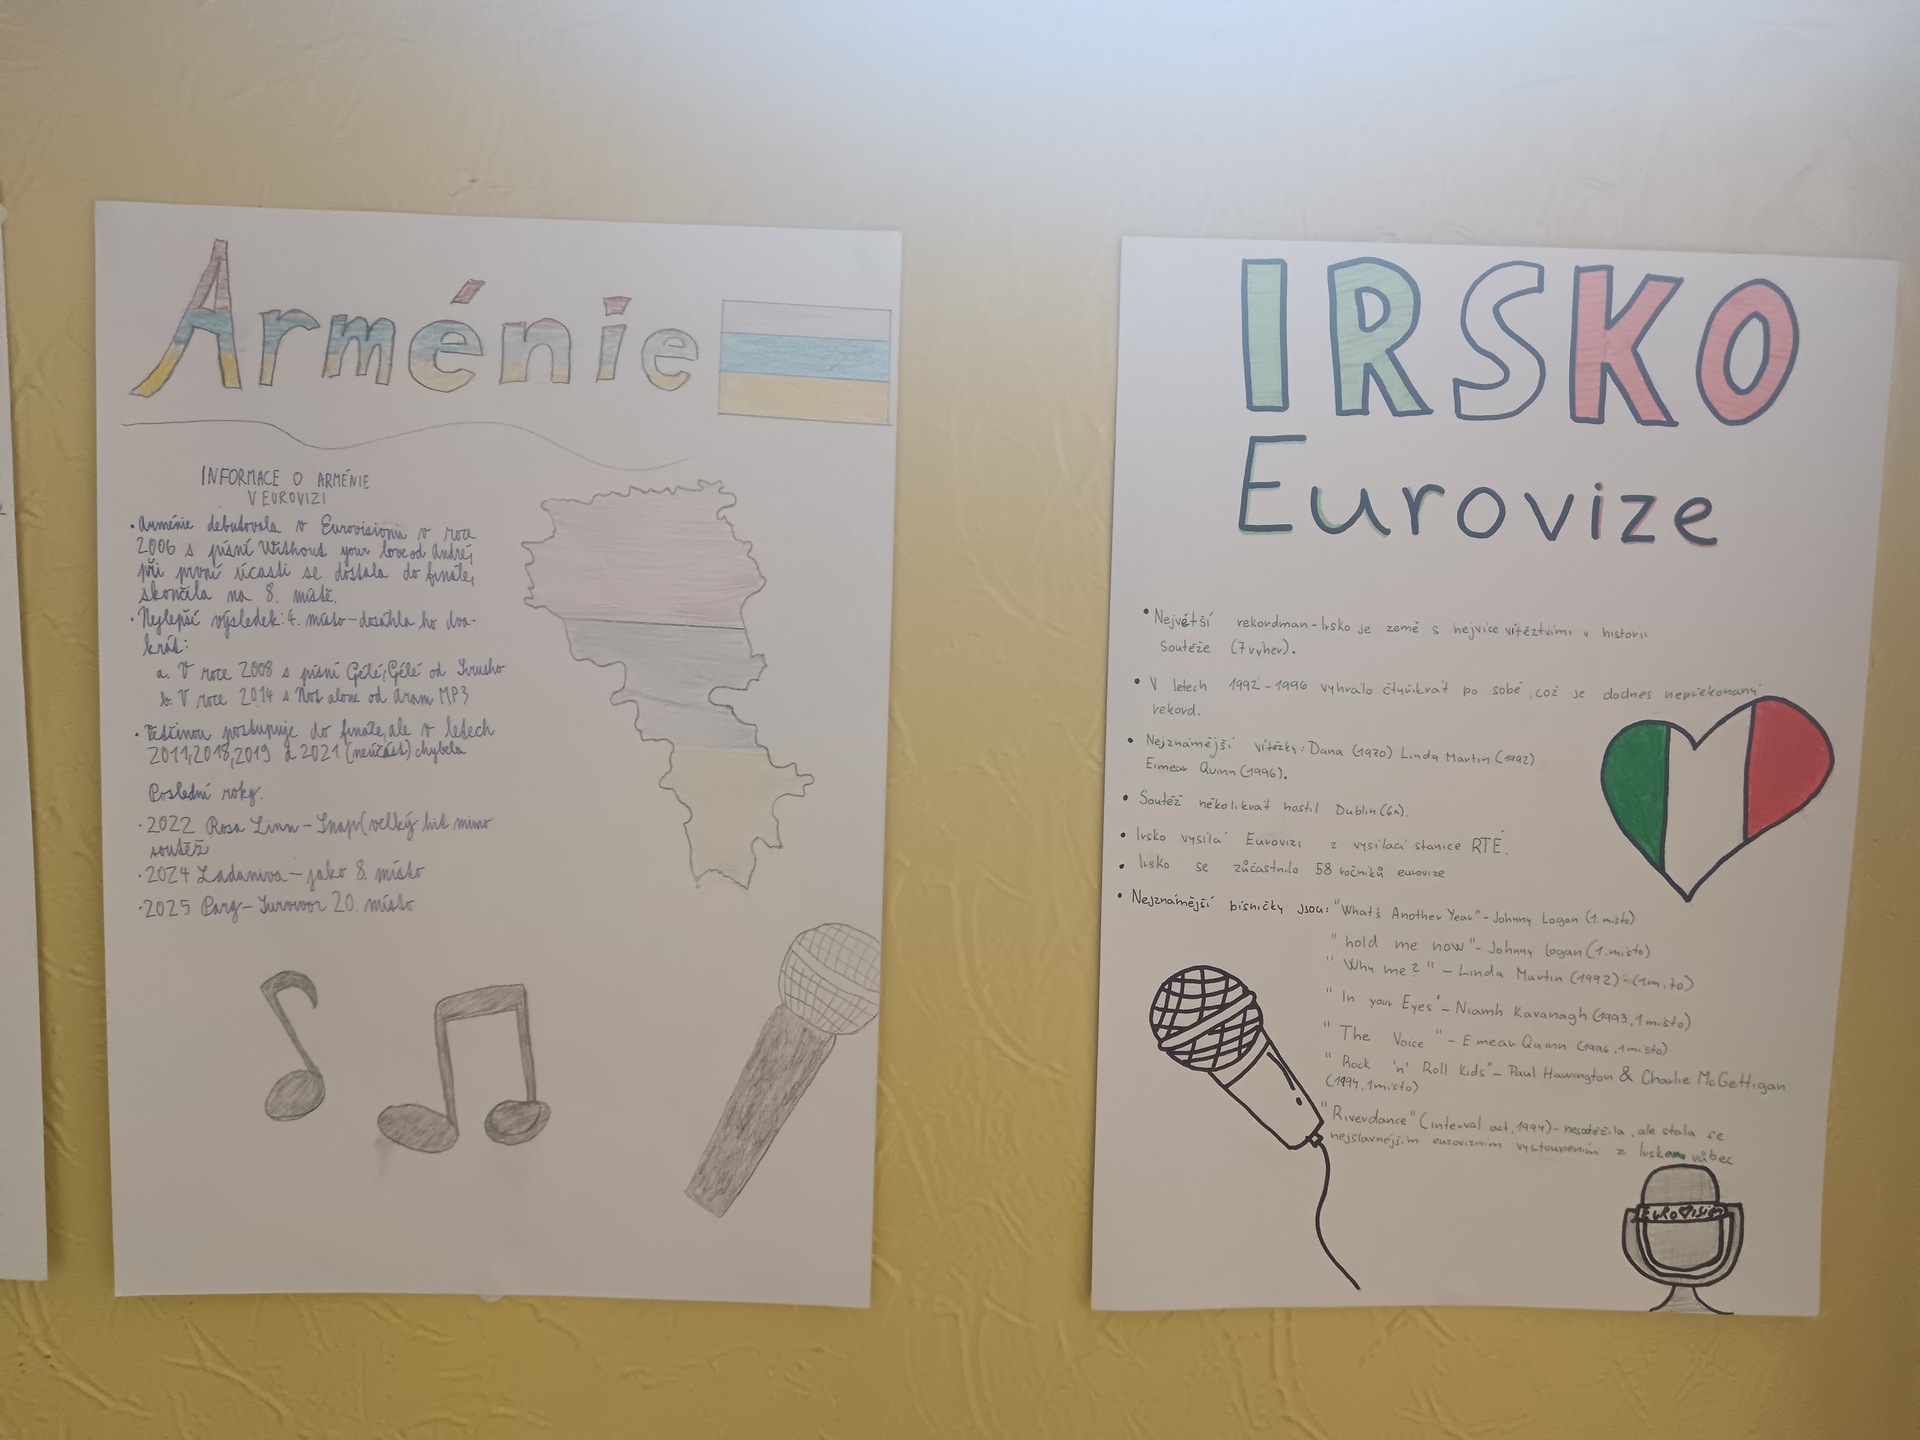 Arménie
INFORMACE O ARMÉNIE
V EUROVIZI
• Arménie debutovala v Eurovisionu v roce
2006 s písní Without your love od André,
při první účasti se dostala do finále,
skončila na 8. místě.
• Nejlepší výsledek: 4. místo - dosáhla ho dva-
krát:
a. V roce 2008 s písní Qélé, Qélé od Sirusho
b. V roce 2014 s Not alone od Aram MP3
• Většinou postupuje do finále, ale v letech
2011, 2018, 2019 a 2021 (neúčast) chyběla
Poslední roky.
• 2022 Rosa Linn - Snap (velký hit mimo
soutěž
• 2024 Ladaniva - jako 8. místo
• 2025 Parg - Survivor 20. místo
IRSKO
Eurovize
• Největší rekordman - Irsko je země s nejvíce vítězstvími v historii
soutěže (7 výher).
• V letech 1992 - 1996 vyhrálo čtyřikrát po sobě, což je dodnes nepřekonaný
rekord.
• Nejznámější vítězky: Dana (1970) Linda Martin (1992)
Eimear Quinn (1996).
• Soutěž několikrát hostil Dublin (6x).
• Irsko vysílá Eurovizi z vysílací stanice RTÉ.
• Irsko se zůčastnilo 58 ročníků eurovize
• Nejznámější písničky jsou: "What's Another Year" - Johnny Logan (1. místo)
"hold me now" - Johnny logan (1. místo)
"Why me?" - Linda Martin (1992) - (1 míto)
"In your Eyes" - Niamh Kavanagh (1993, 1 místo)
"The Voice" - Eimear Quinn (1996, 1 místo)
"Rock 'n' Roll Kids" - Paul Harrington & Charlie McGettigan
(1994, 1 místo)
"Riverdance" (interval act, 1994) - nesoutěžila, ale stala se
nejslavnějším eurovizním vystoupením z Irskem vůbec
EUROVISION